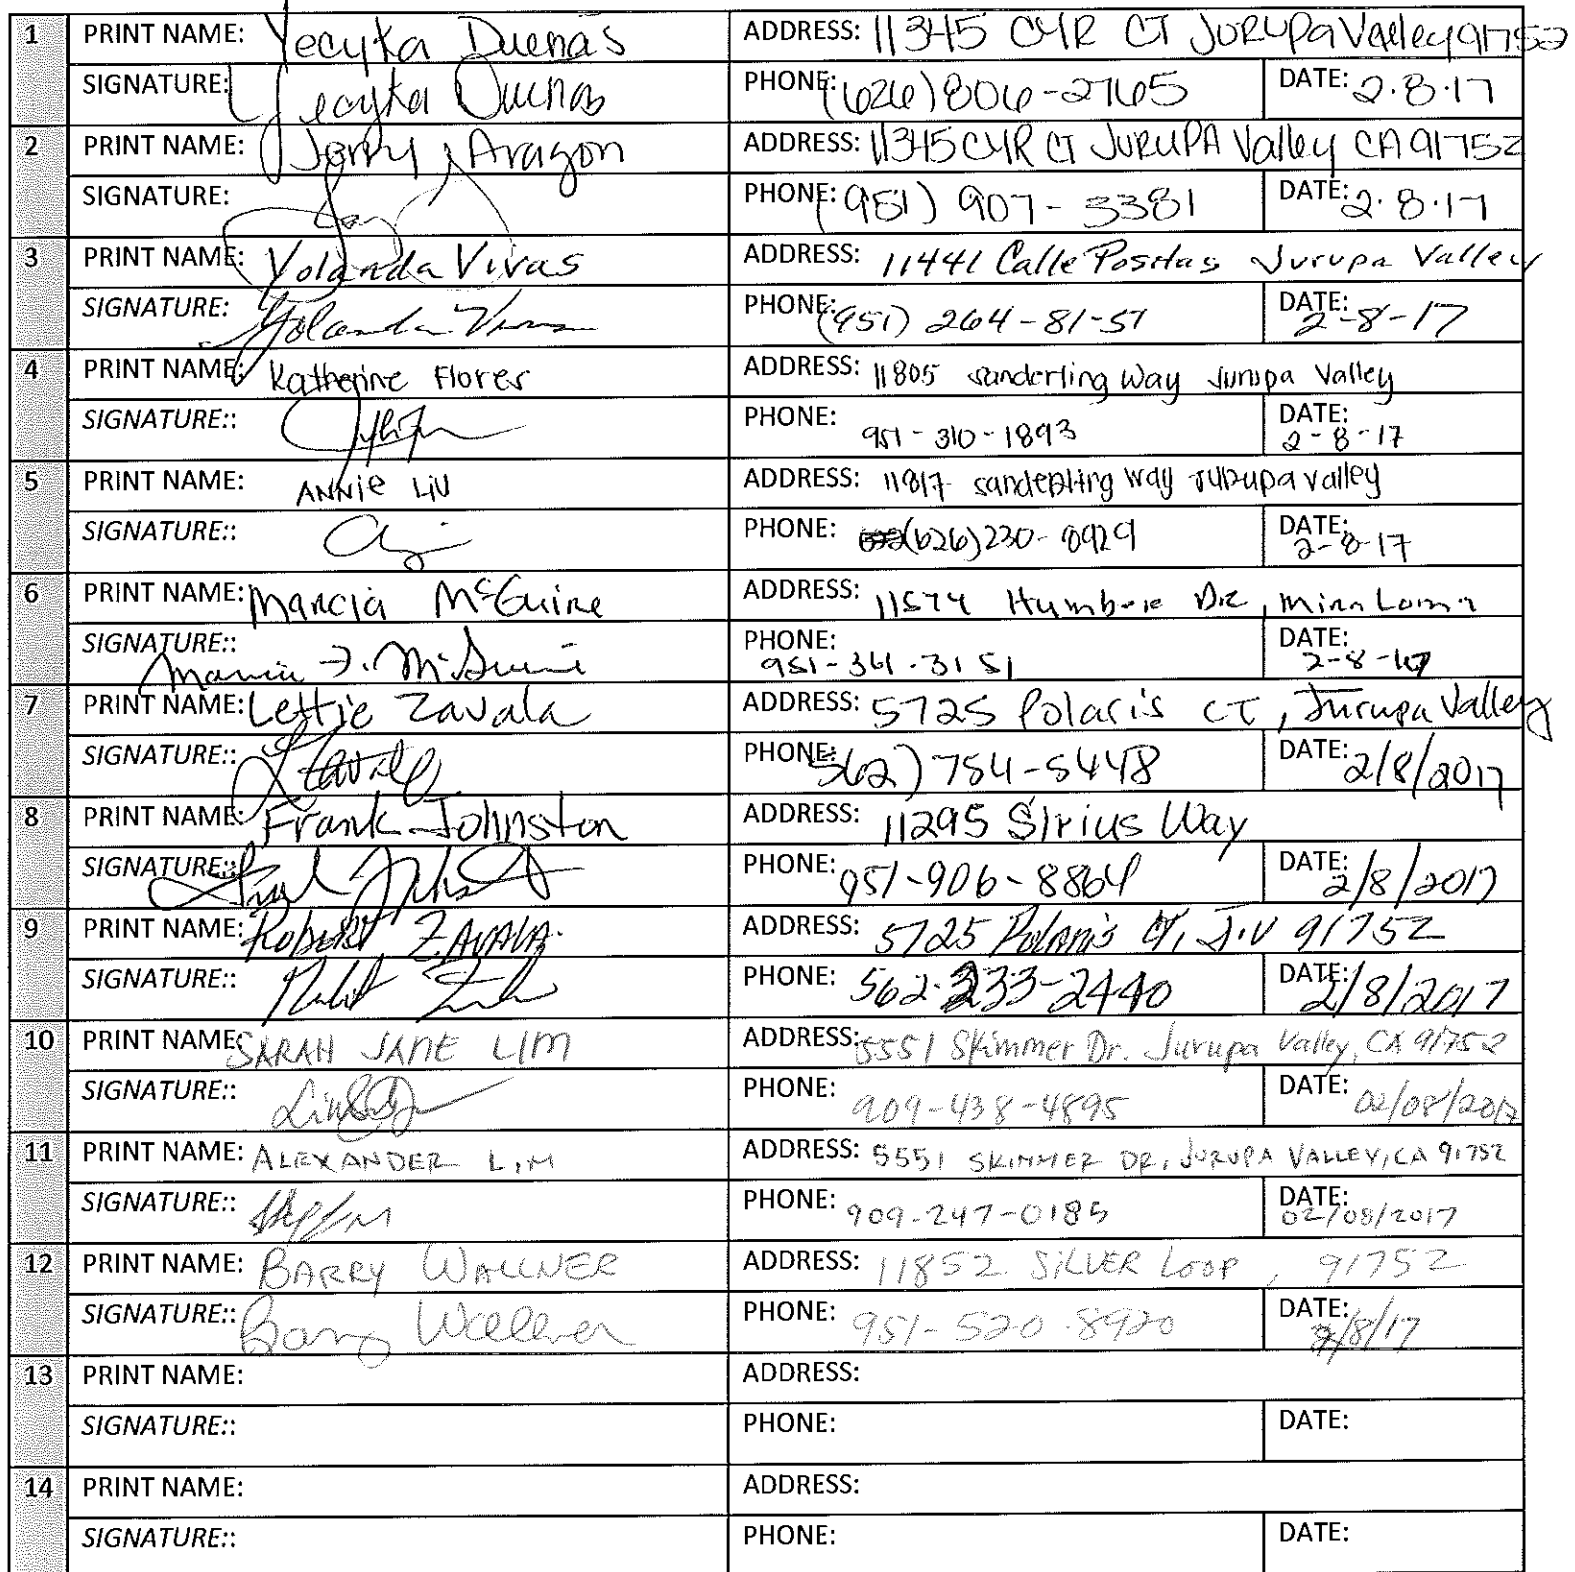 1 PRINT NAME: Yecyka Duenas ADDRESS: 11345 CYR CT JURUPA Valley 91752
SIGNATURE: Yecyka Duenas PHONE: (626) 806-2765 DATE: 2.8.17
2 PRINT NAME: Jerry Aragon ADDRESS: 11345 CYR CT JURUPA Valley CA 91752
SIGNATURE: PHONE: (951) 907-3381 DATE: 2.8.17
3 PRINT NAME: Yolanda Vivas ADDRESS: 11441 Calle Positas Jurupa Valley
SIGNATURE: Yolanda Vivas PHONE: (951) 264-81-57 DATE: 2-8-17
4 PRINT NAME: Katherine Flores ADDRESS: 11805 sanderling Way Jurupa Valley
SIGNATURE:: PHONE: 951-310-1893 DATE: 2-8-17
5 PRINT NAME: ANNie LiU ADDRESS: 11817 sanderling way Jurupa valley
SIGNATURE:: PHONE: (626)230-0929 DATE: 2-8-17
6 PRINT NAME: Marcia McGuire ADDRESS: 11574 Humber Dr, Mira Loma
SIGNATURE:: Marcia J. McGuire PHONE: 951-361-3151 DATE: 2-8-17
7 PRINT NAME: Lettie Zavala ADDRESS: 5725 Polaris CT, Jurupa Valley
SIGNATURE:: LZavala PHONE: 562) 754-5448 DATE: 2/8/2017
8 PRINT NAME: Frank Johnston ADDRESS: 11295 Sirius Way
SIGNATURE:: Frank Johnston PHONE: 951-906-8864 DATE: 2/8/2017
9 PRINT NAME: Robert ZAVALA ADDRESS: 5725 Polaris Ct, J.V 91752
SIGNATURE:: PHONE: 562-233-2440 DATE: 2/8/2017
10 PRINT NAME: SARAH JANE LIM ADDRESS: 5551 Skimmer Dr. Jurupa Valley, CA 91752
SIGNATURE:: PHONE: 909-438-4895 DATE: 02/08/2017
11 PRINT NAME: ALEXANDER LIM ADDRESS: 5551 SKIMMER DR, JURUPA VALLEY, CA 91752
SIGNATURE:: PHONE: 909-247-0185 DATE: 02/08/2017
12 PRINT NAME: BARRY WALLNER ADDRESS: 11852 SILVER LOOP, 91752
SIGNATURE:: Barry Wallner PHONE: 951-520-8920 DATE: 2/8/17
13 PRINT NAME: ADDRESS:
SIGNATURE:: PHONE: DATE:
14 PRINT NAME: ADDRESS:
SIGNATURE:: PHONE: DATE: